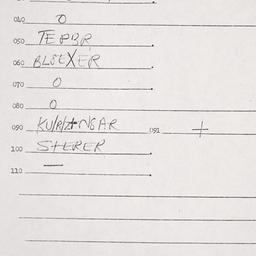 040 0
050 TEPPR.
060 BLSEXER.
070 0
080 0
090 091 +
100 STERER.
110 —